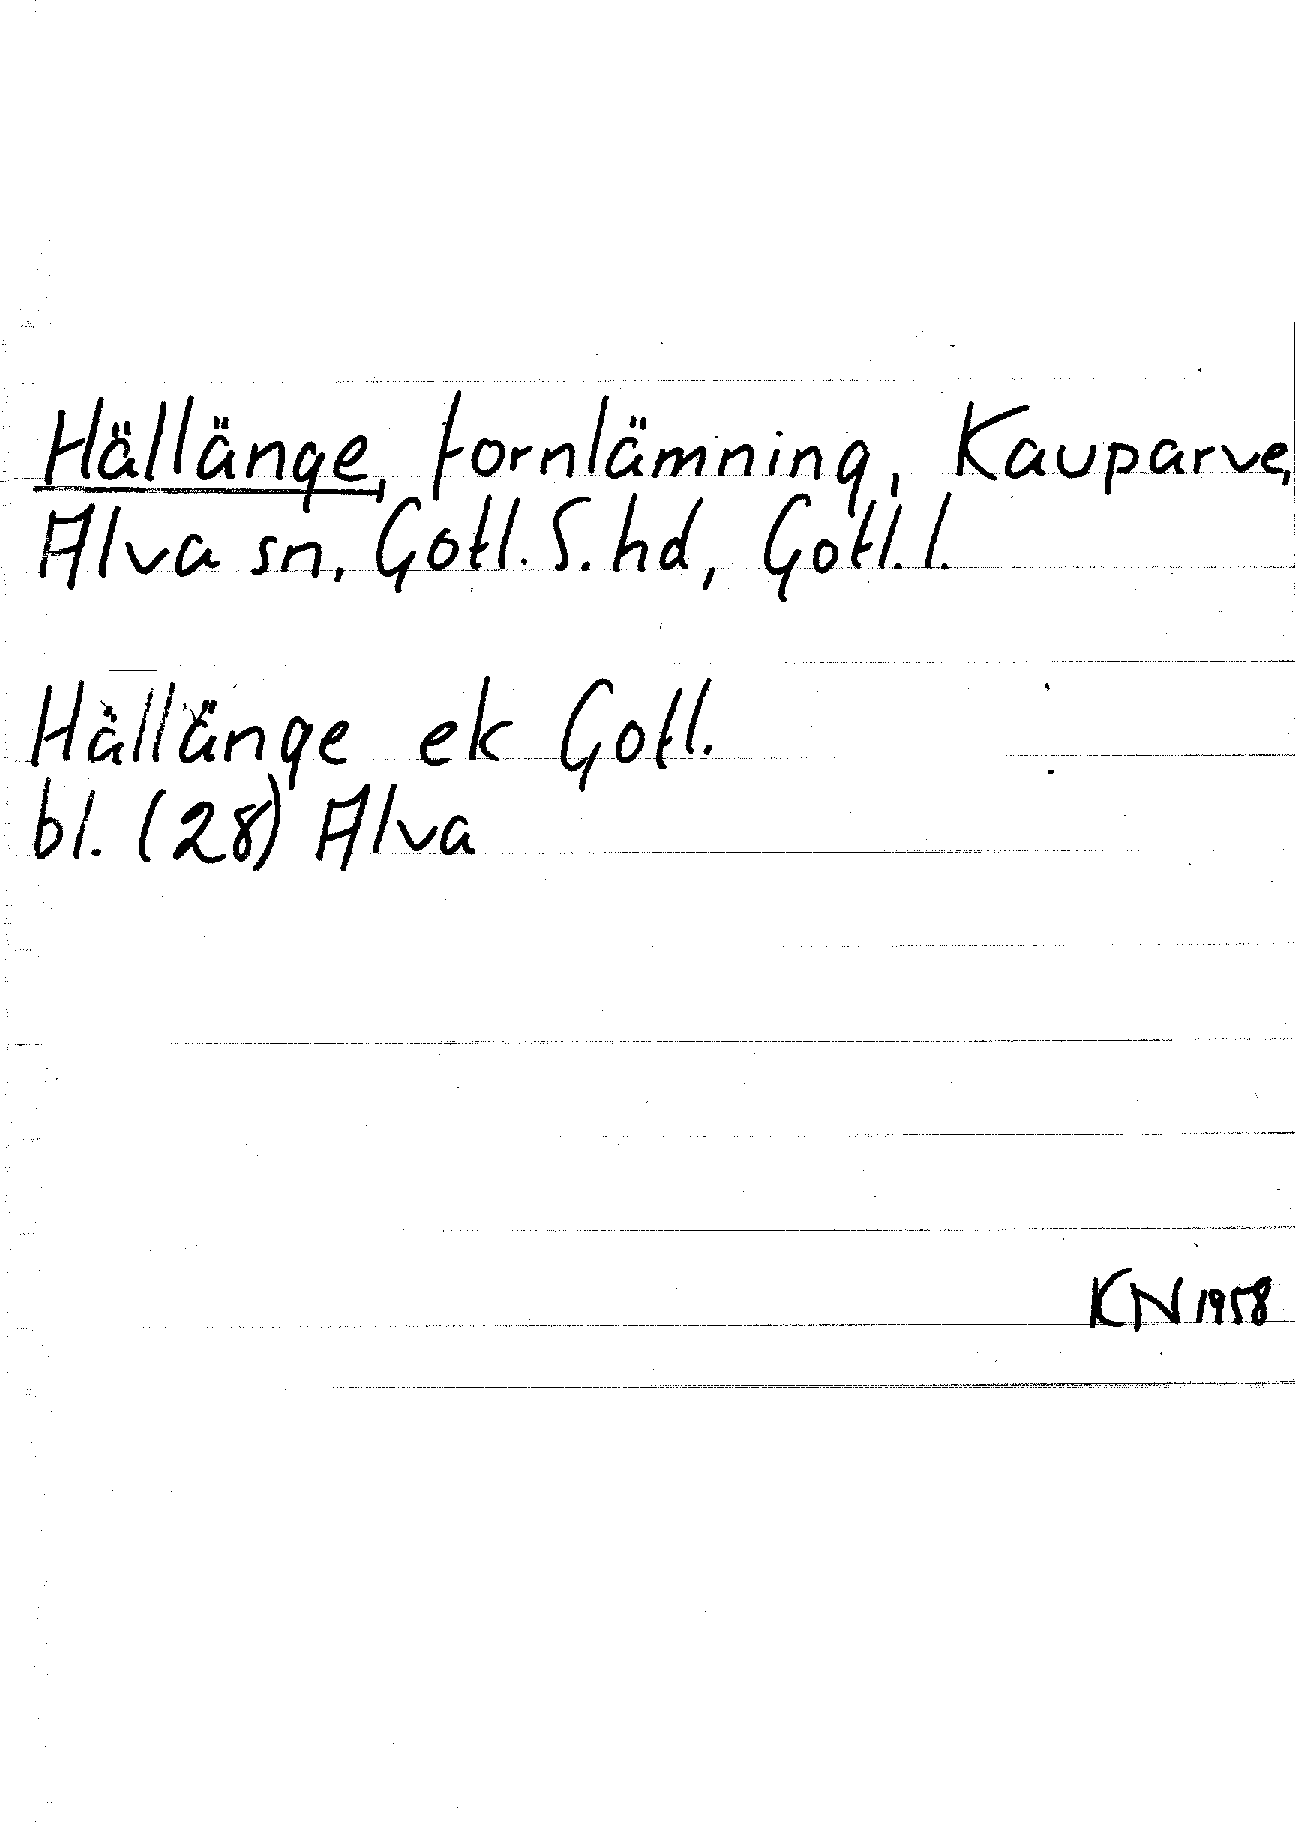 Hällänge, fornlämning, Kauparve,
Alva sn, Gotl. S. hd, Gotl. l.
Hällänge ek Gotl.
bl. (28) Alva
KN 1958